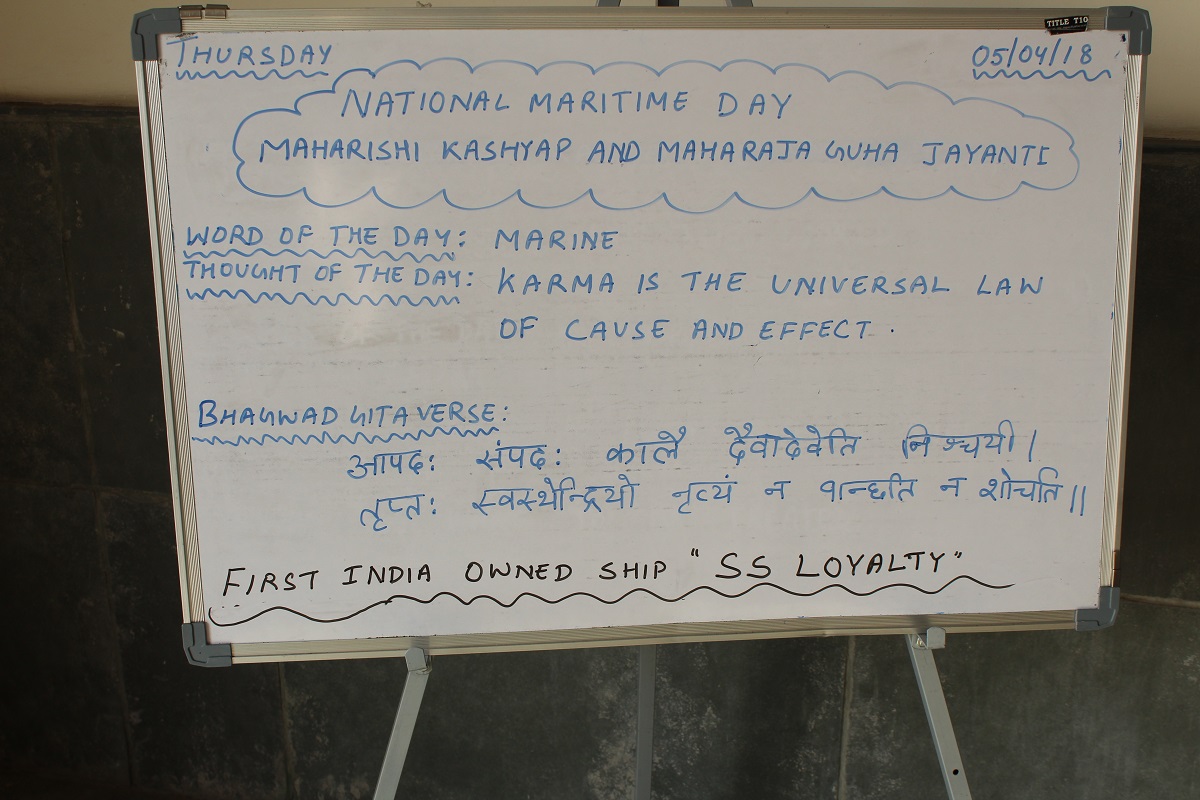 TITLE T10
THURSDAY 05/04/18
NATIONAL MARITIME DAY
MAHARISHI KASHYAP AND MAHARAJA GUHA JAYANTI
WORD OF THE DAY: MARINE
THOUGHT OF THE DAY: KARMA IS THE UNIVERSAL LAW
OF CAUSE AND EFFECT.
BHAGWAD GITA VERSE:
आपदः संपदः कालै दैवादेवेति निश्चयी।
तृप्तः स्वस्थेन्द्रियो नृत्यं न वान्छति न शोचति॥
FIRST INDIA OWNED SHIP "SS LOYALTY"